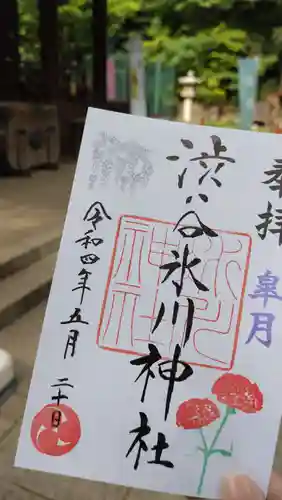 奉拝
皐月
渋谷氷川神社
氷川
神社
令和四年五月二十日